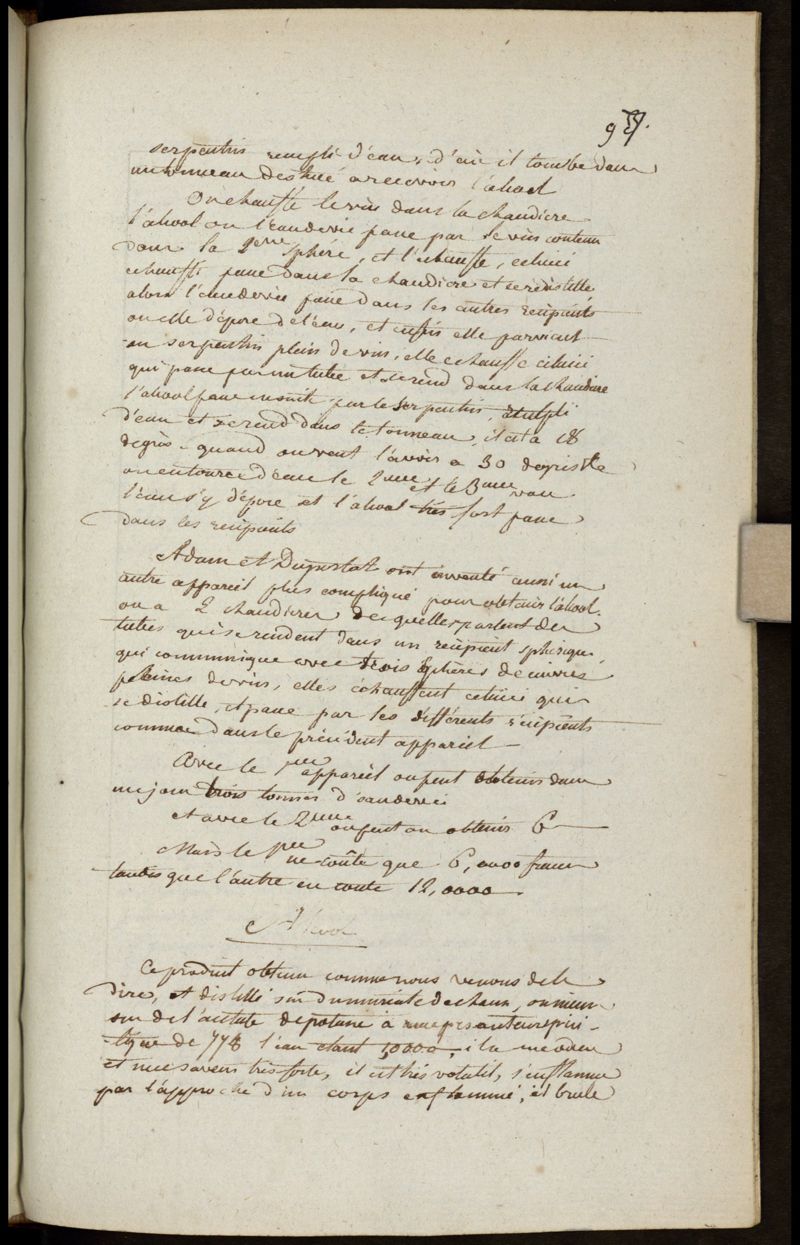 serpentin rempli d'eau, d'où il tombe dans
un tonneau destiné a recevoir l'alcool
On chauffe le vin dans la chaudiere
l'alcool ou l'eaudevie passe par le vin contenu
dans la 2eme sphère, et l'echauffe, celuici
echauffé passe dans la chaudiere et se redistille
alors l'eaudevie passe dans les autres récipients
ou elle dépose de l'eau, et enfin elle parvient
au serpentin plein de vin, elle echauffe celuici
qui passe par un tube et se rend dans la chaudiere
l'alcool passe ensuite par le serpentin, rempli
d'eau et se rend dans le tonneau, il est a 18
degrès. quand on veut l'avoir a 30 degrés
on entoure d'eau le 2eme et le 3eme vase
l'eau s'y dépose et l'alcool très fort passe
dans les recipients
Adam et Duportal ont inventé aussi un
autre appareil plus compliqué pour obtenir l'alcool.
on a 2 chaudieres desquelles partent des
tubes qui se rendent dans un récipient spherique,
qui communique avec trois sphères de cuivres
pleines de vin, elles échauffent celuici qui
se distille, et passe par les différents récipients
comme dans le précédent appareil
Avec le 1er appareil on peut obtenir dans
un jour trois tonnes d'eaudevie
et avec le 2eme on peut en obtenir 6
Mais le 1er ne coûte que 6,0000 francs
tandis que l'autre en coute 12,0000.
Alcool
Ce produit obtenu comme nous venons de le
dire, et distillé sur du muriate de chaux, ou mieux
sur de l'acetate de potasse à une pesanteur spéci-
fique de 778 l'eau etant 10000, il a une odeur
et une saveur très forte, il est très volatil, s'enflamme
par l'approche d'un corps enflammé, il brule